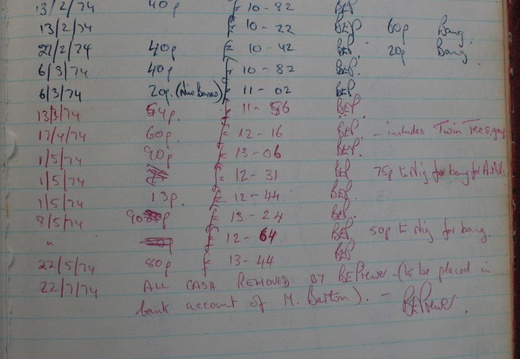 13/2/74 40p £10-82 BEP
13/2/74 £10-22 BEP 60p Bang
27/2/74 40p £10-42 BEP 20p Bang
6/3/74 40p £10-82 BEP
6/3/74 20p £11-02 BEP
13/3/74 54p. £11-56 BEP
17/4/74 60p £12-16 BEP - includes Twin Trees
1/5/74 90p £13-06 BEP
1/5/74 £12-31 BEP 75p to Nig for bang for
1/5/74 13p. £12-44 BEP
8/5/74 £13-24 BEP
" £12-64 BEP 50p to Nig for bang.
22/5/74 80p £13-44 BEP
22/7/74 ALL CASH REMOVED BY (to be placed in
bank account of M. Barton). -